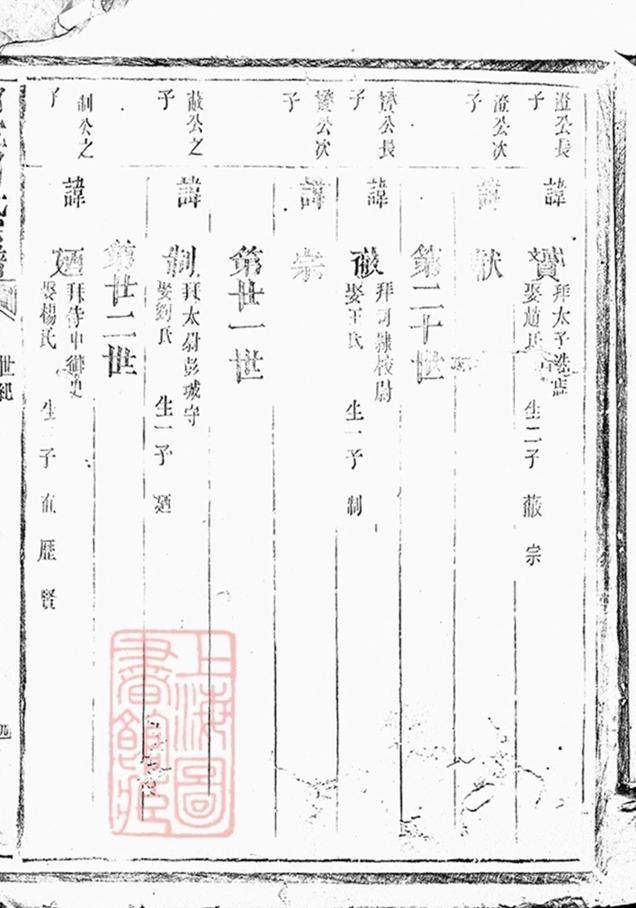 澄公長子
諱寶
拜太子洗馬
娶趙氏 生二子 蔽 宗
澄公次子
諱猷
第二十世
寶公長子
諱蔽
拜司隸校尉
娶王氏 生一子 制
寶公次子
諱崇
第廿一世
蔽公之子
諱制
拜太尉彭城守
娶劉氏 生一子 廼
第廿二世
制公之子
諱廼
拜侍中御史
娶楊氏 生 子 歷 賢
世紀
九
上海圖書館藏